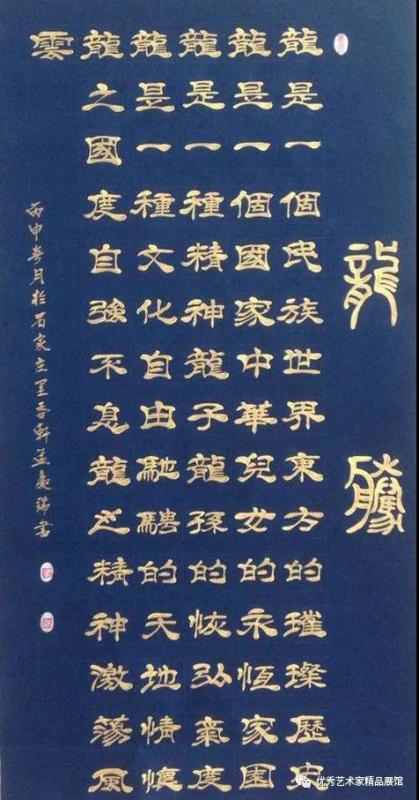 龍騰
龍是一個民族世界東方的璀璨歷史
龍是一個國家中華兒女的永恆家園
龍是一種精神龍子龍孫的恢弘氣度
龍是一種文化自由馳騁的天地情懷
龍之國度自強不息龍之精神激蕩風
雲
丙申春月於石家莊里香軒孟慶瑞書
优秀艺术家精品展馆